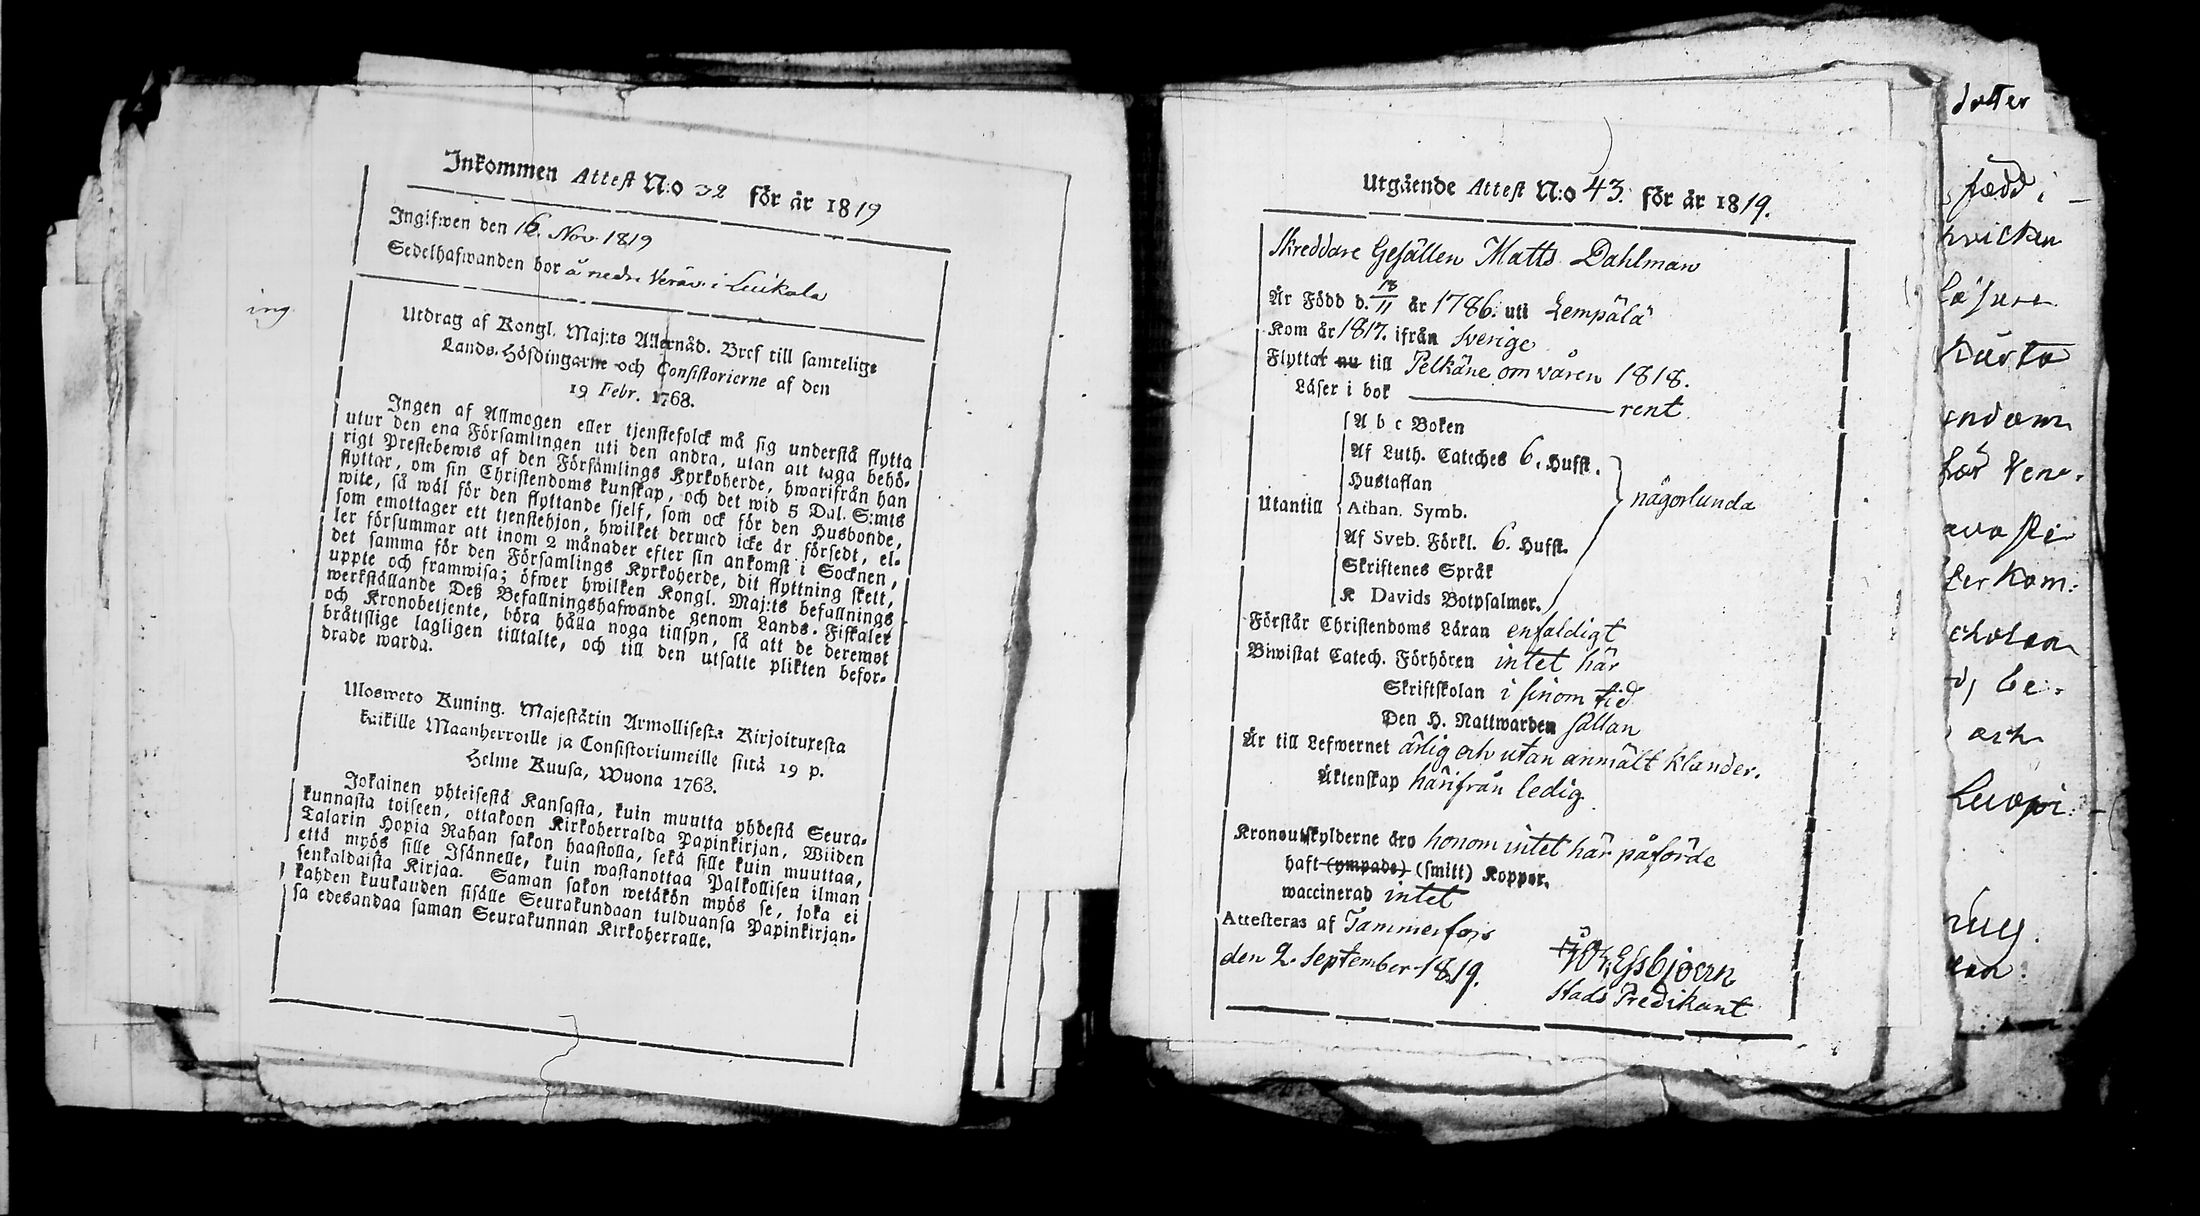 Inkommen Attest N:o 32 för år 1819
Ingifwen den 16. Nov. 1819
Sedelhafwanden bor å nedre
ing
Utdrag af Kongl. Maj:ts Allernåd. Bref till samtelige
Lands-Höfdingarne och Consistorierne af den
19 Febr. 1768.
Ingen af Allmogen eller tjenstefolck må sig understå flytta
utur den ena Församlingen uti den andra, utan att taga behö-
rigt Prestebewis af den Församlings Kyrkoherde, hwarifrån han
flyttar, om sin Christendoms kunskap, och det wid 5 Dal. S:mts
wite, så wäl för den flyttande sjelf, som ock för den Husbonde,
som emottager ett tjenstehjon, hwilket dermed icke är försedt, el-
ler försummar att inom 2 månader efter sin ankomst i Socknen,
det samma för den Församlings Kyrkoherde, dit flyttning skett,
uppte och framwisa; öfwer hwilken Kongl. Maj:ts befallnings
werkställande Deß Befallningshafwande genom Lands-Fiskaler
och Kronobetjente, böra hålla noga tillsyn, så att de deremot
bråtislige lagligen tilltalte, och till den utsatte plikten befor-
drade warda.
Ulosweto Kuning. Majestätin Armollisesta Kirjoituxesta
kaikille Maanherroille ja Consistoriumeille siitä 19 p.
Helme Kuusa, Wuona 1768.
Jokainen yhteisestä Kansasta, kuin muutta yhdestä Seura-
kunnasta toiseen, ottakoon Kirkoherralda Papinkirjan, Wiiden
Talarin Hopia Rahan sakon haastolla, sekä sille kuin muuttaa,
että myös sille Isännelle, kuin wastanottaa Palkollisen ilman
senkaldaista Kirjaa. Saman sakon wetäkön myös se, joka ei
kahden kuukauden sisälle Seurakundaan tulduansa Papinkirjan-
sa edesandaa saman Seurakunnan Kirkoherralle.
Utgående Attest N:o 43. för år 1819.
Skreddare Gesällen Matts Dahlman
Är Född d. 18/11 år 1786. uti Lempälä
Kom år 1817. ifrån Sverige
Flyttat nu till Pelkäne om våren 1818.
Läser i bok rent
A b c Boken
Af Luth. Cateches 6. Hufst.
Hustaflan
Utantill Athan. Symb. någorlunda
Af Sveb. Förkl. 6. Hufst.
Skriftenes Språk
K Davids Botpsalmer.
Förstår Christendoms Läran enfaldigt
Biwistat Catech. Förhören intet här
Skriftskolan i sinom tid
Den H. Nattwarden sällan
Är till Lefwernet ärlig och utan anmält klander.
Äktenskap härifrån ledig
Kronoutskylderne äro honom intet här påförde
haft (ympade) (smitt) Koppor.
waccinerad intet
Attesteras af Tammerfors
den 2. September 1819. Essbjoern
Stads Predikant
dotter
född i